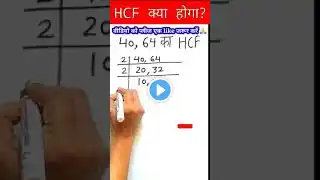 HCF क्या होगा?
वीडियो को प्लीज एक like जरूर करें🙏
40, 64 का HCF
2 | 40, 64
2 | 20, 32
10,